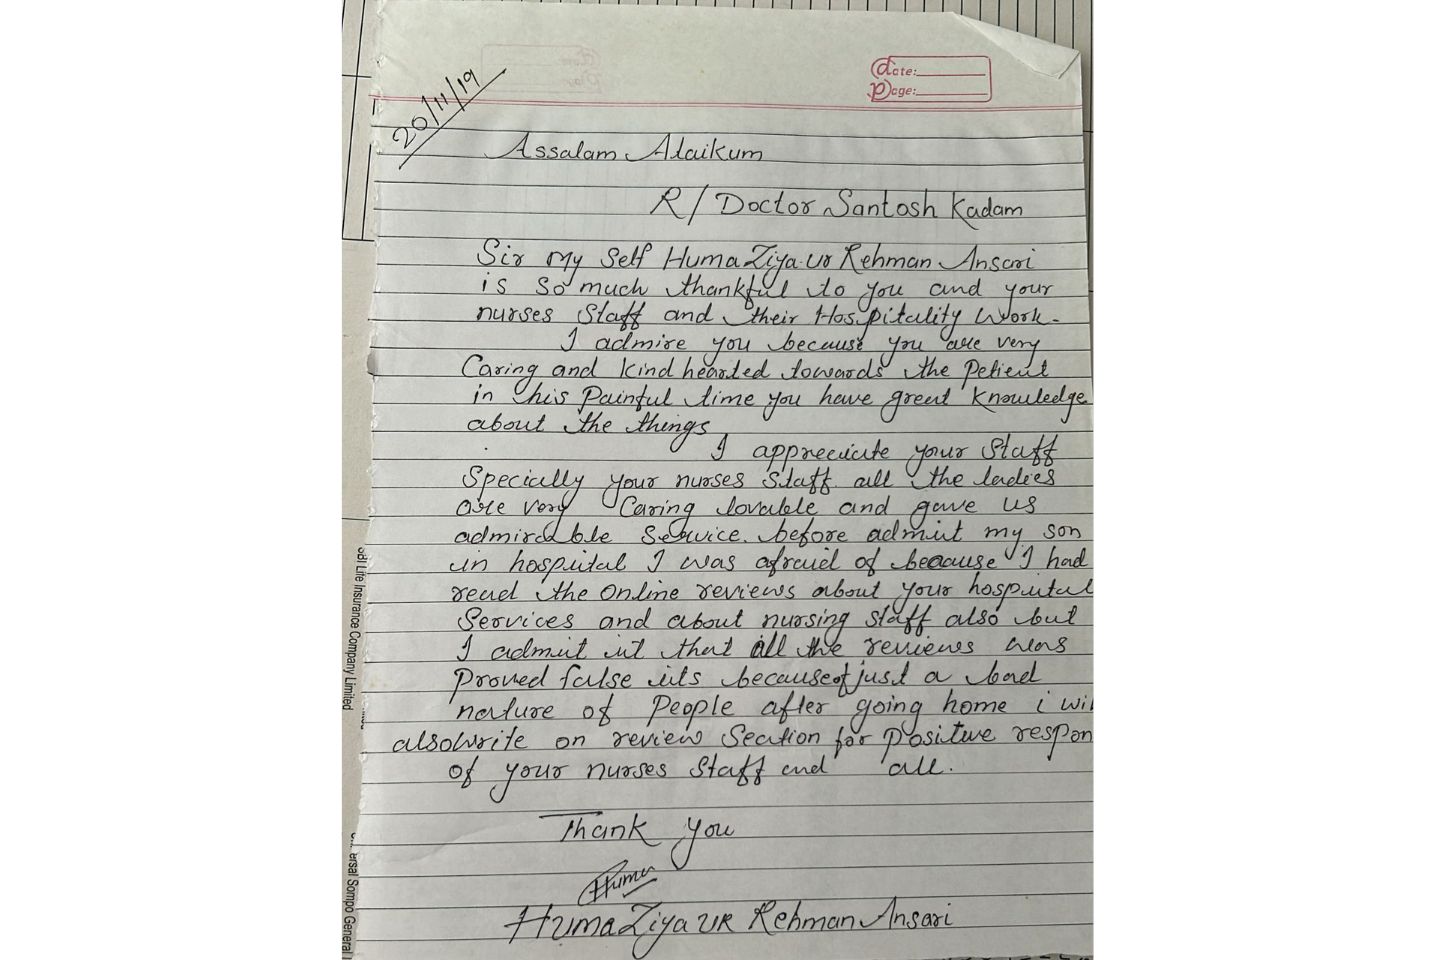 Date:
Page:
20/11/19
Assalam Alaikum
R/ Doctor Santosh Kadam
Sir My Self Huma Ziya ur Rehman Ansari
is so much thankful to you and your
nurses Staff and their Hospitality Work.
I admire you because you are very
Caring and kind hearted towards the Petient
in his Painful time you have great knowledge
about the things
I appreciate your Staff
Specially your nurses staff all the ladies
are very Caring lovable and gave us
admirable Service. before admit my son
in hospital I was afraid of because I had
read the online reviews about your hospital
Services and about nursing staff also but
I admit it that all the reviews was
Proved false its because of just a bad
nature of People after going home i wil
also write on review Section for Positive respon
of your nurses Staff and all.
Thank you
Huma
Huma Ziya UR Rehman Ansari
SBI Life Insurance Company Limited
ersal Sompo General